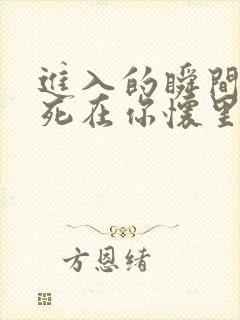 進入的瞬間
死在你懷里
方恩绪